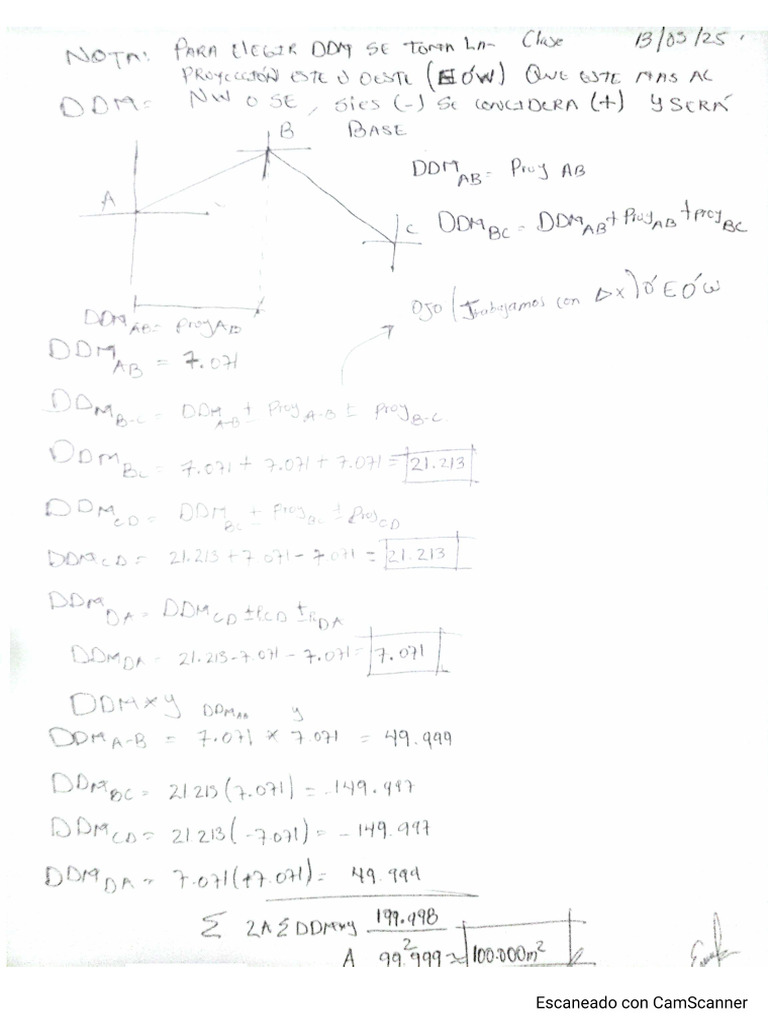 Clase 13/05/25.
NOTA: PARA ELEGIR DDM SE TOMA LA
PROYECCIÓN ESTE U OESTE (E Ó W) QUE ESTE MAS AL
DDM= NW O SE, SIES (-) SE CONCIDERA (+) Y SERÁ
BASE
B
A
C
DDM AB = Proy AB
DDM BC = DDM AB + Proy AB + proy BC
OJO (Trabajamos con Δx) Ó E Ó W
DDM AB = proy AB
DDM AB = 7.071
DDM B-C = DDM A-B ± Proy A-B ± Proy B-C
DDM BC = 7.071 + 7.071 + 7.071 = 21.213
DDM CD = DDM BC ± Proy BC ± Proy CD
DDM CD = 21.213 + 7.071 - 7.071 = 21.213
DDM DA = DDM CD ± P CD ± P DA
DDM DA = 21.213 - 7.071 - 7.071 = 7.071
DDM x y DDM y
DDM A-B = 7.071 x 7.071 = 49.999
DDM BC = 21.213 (7.071) = -149.997
DDM CD = 21.213 (-7.071) = -149.997
DDM DA = 7.071 (+7.071) = 49.999
Σ 2A Σ DDM x y 199.998
2
A 99.999 ≈ 100.000m²
Escaneado con CamScanner